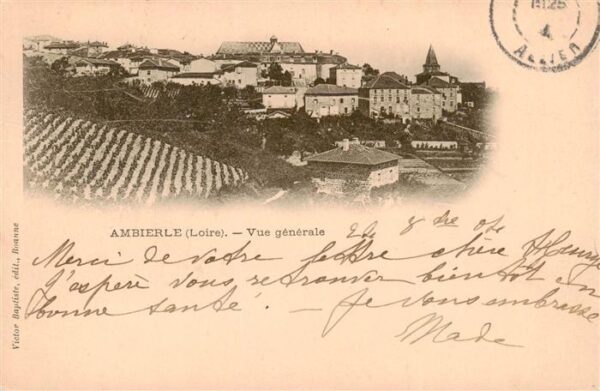 1 E 25
4
ALLIER
AMBIERLE (Loire). — Vue générale
8 bre
Merci de votre lettre chère
J'espère vous retrouver bientôt en
bonne santé. — Je vous embrasse
Made
Victor Baptiste, édit., Roanne